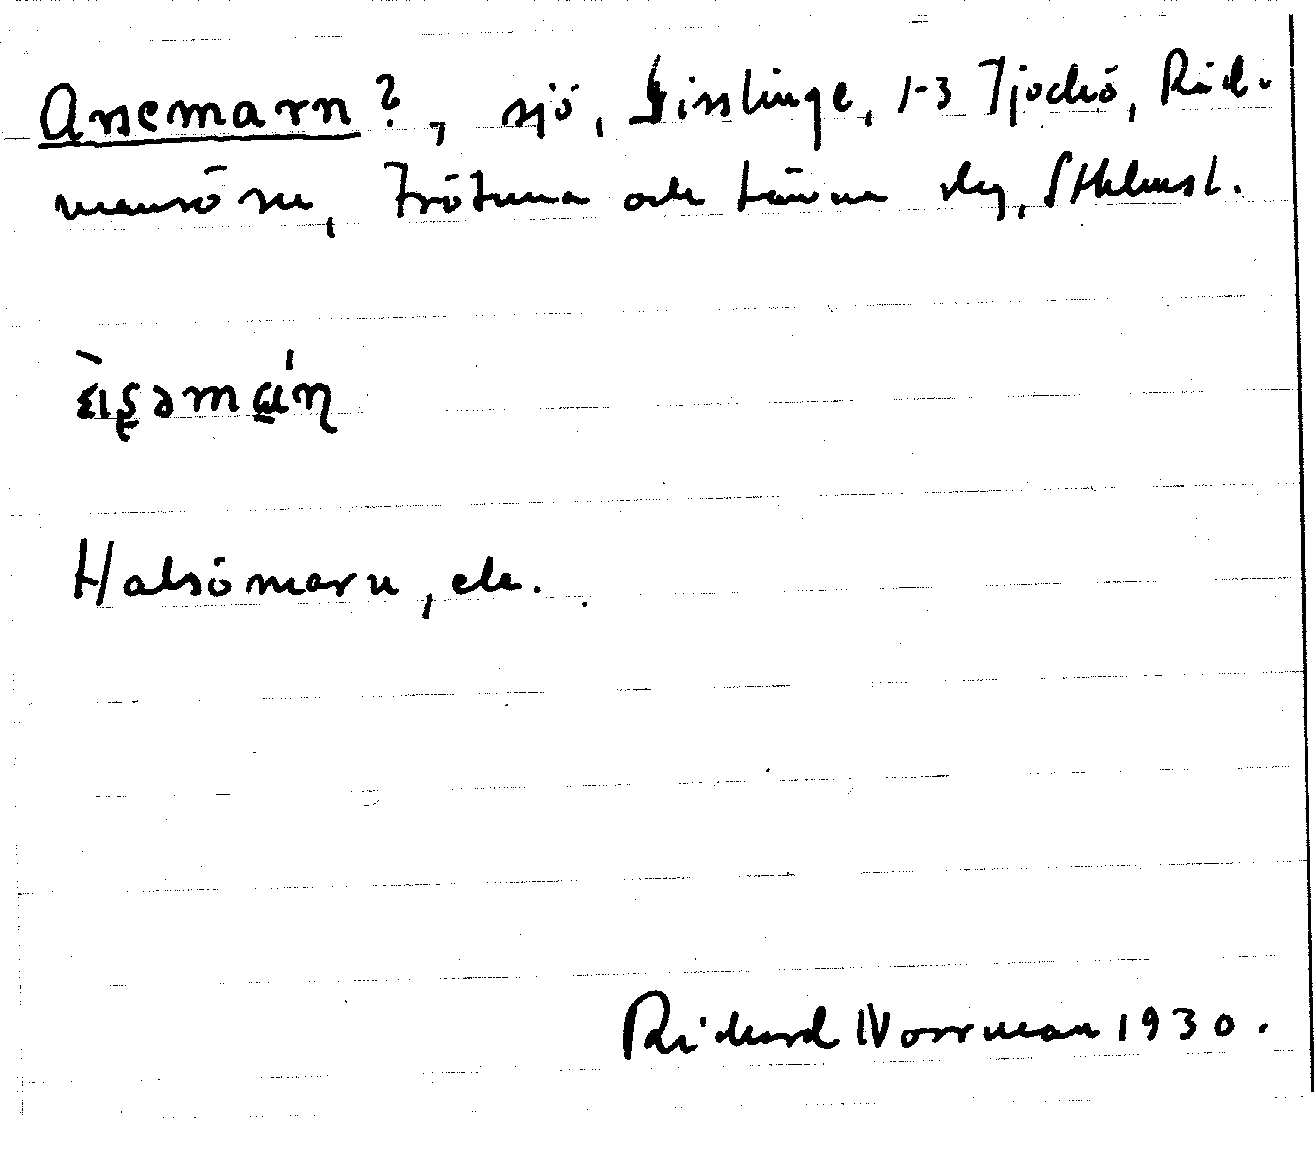 Arsemarn?, sjö, Gisslinge, 1-3 Tjockö, Råd-
mansö sn, Frötuna och Länna skg, Sthlmsl.
Halsömarn, etc.
Rickard Norrman 1930.